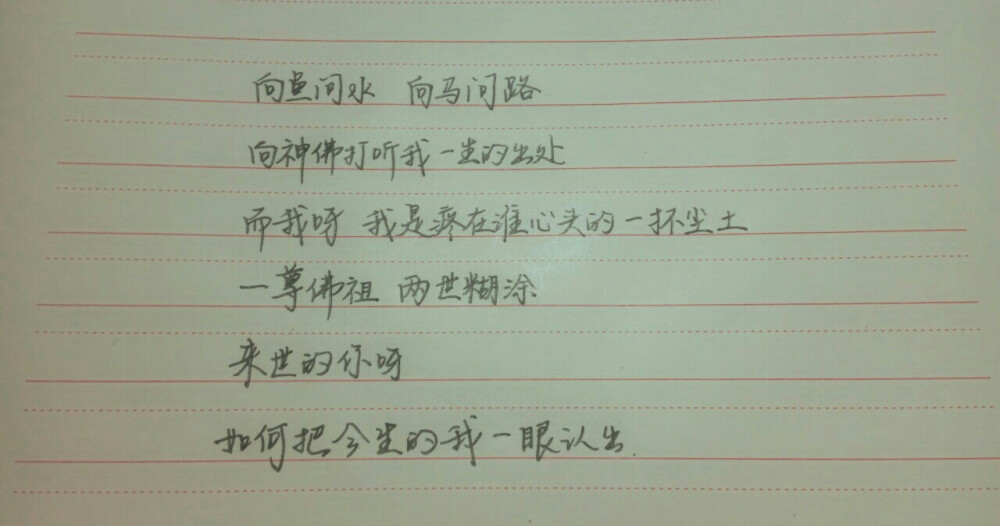 向鱼问水 向马问路
向神佛打听我一生的出处
而我呀 我是疼在谁心头的一抔尘土
一尊佛祖 两世糊涂
来世的你呀
如何把今生的我一眼认出.